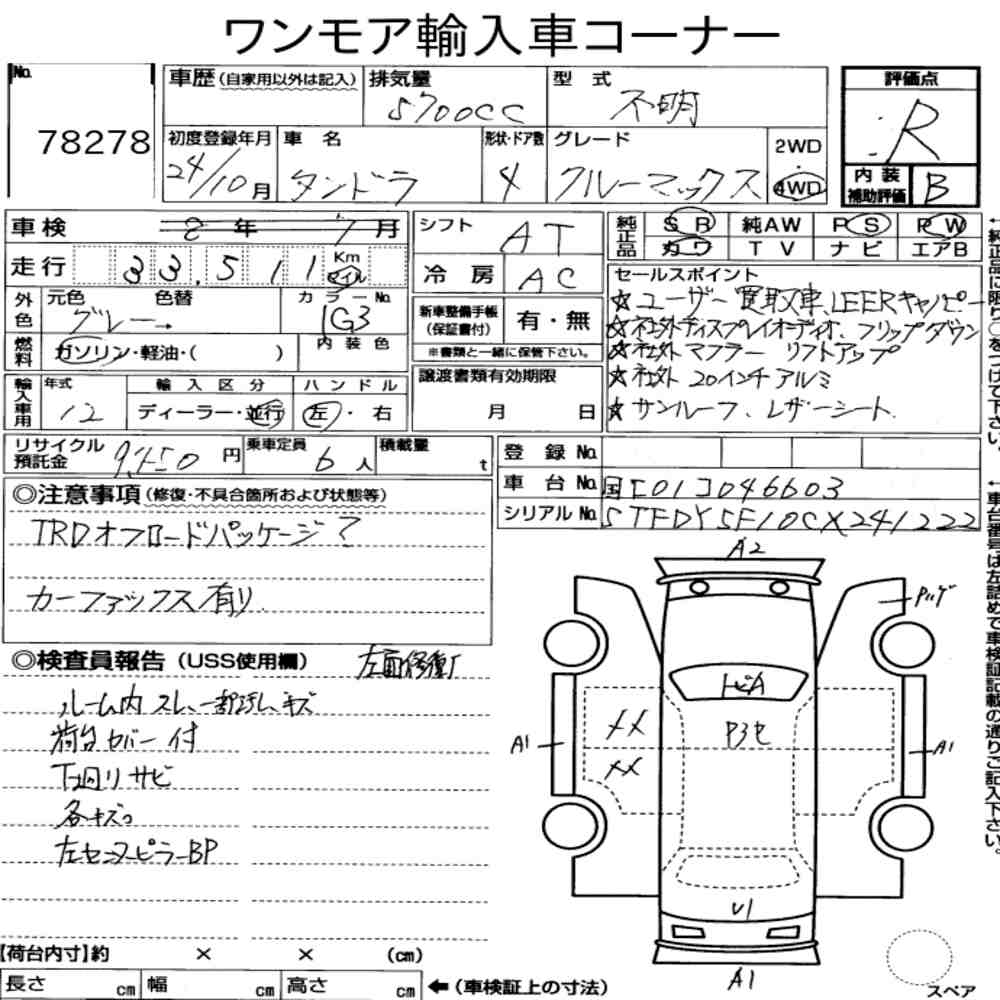 ワンモア輸入車コーナー
No.
78278
車歴 (自家用以外は記入)
排気量
5700CC
型 式
不明
評価点
R
初度登録年月
24/10月
車 名
タンドラ
形状・ドア数
4
グレード
クルーマックス
2WD
・
4WD
内 装
補助評価
B
車検 8 年 7 月
走行 33,511 Km マイル
外色
元色 色替 カラーNo.
グレー→ 1G3
燃料
ガソリン・軽油・( )
内 装 色
輸入車用
年式
12
輸 入 区 分
ディーラー・並行
ハ ン ド ル
左・右
シフト AT
冷 房 AC
新車整備手帳
(保証書付)
有・無
※書類と一緒に保管下さい。
譲渡書類有効期限
月 日
純正品
SR 純AW PS PW
カワ TV ナビ エアB
←純正品に限り○をつけて下さい。
セールスポイント
☆ユーザー買取車、LEERキャノピー
☆社外ディスプレイオーディオ、フリップダウン
☆社外マフラー リフトアップ
☆社外20インチアルミ
☆サンルーフ、レザーシート.
リサイクル
預託金
円
乗車定員
6人
積載量
t
登 録 No.
車 台 No. 国[01]046603
シリアルNo. 5TFDY5F10CX241222
←車台番号は左詰めで車検証記載の通りご記入下さい。
◎注意事項(修復・不具合箇所および状態等)
TRDオフロードパッケージ?
カーファックス有り
◎検査員報告(USS使用欄)
左面修復
ルーム内スレ、一部汚レ、キズ
荷台カバー付
下廻りサビ
各キズ
左センターピラーBP
A2
トビA
XX
XX
A1
A1
U1
A1
スペア
【荷台内寸】約 × × (cm)
長さ cm 幅 cm 高さ cm ←(車検証上の寸法)